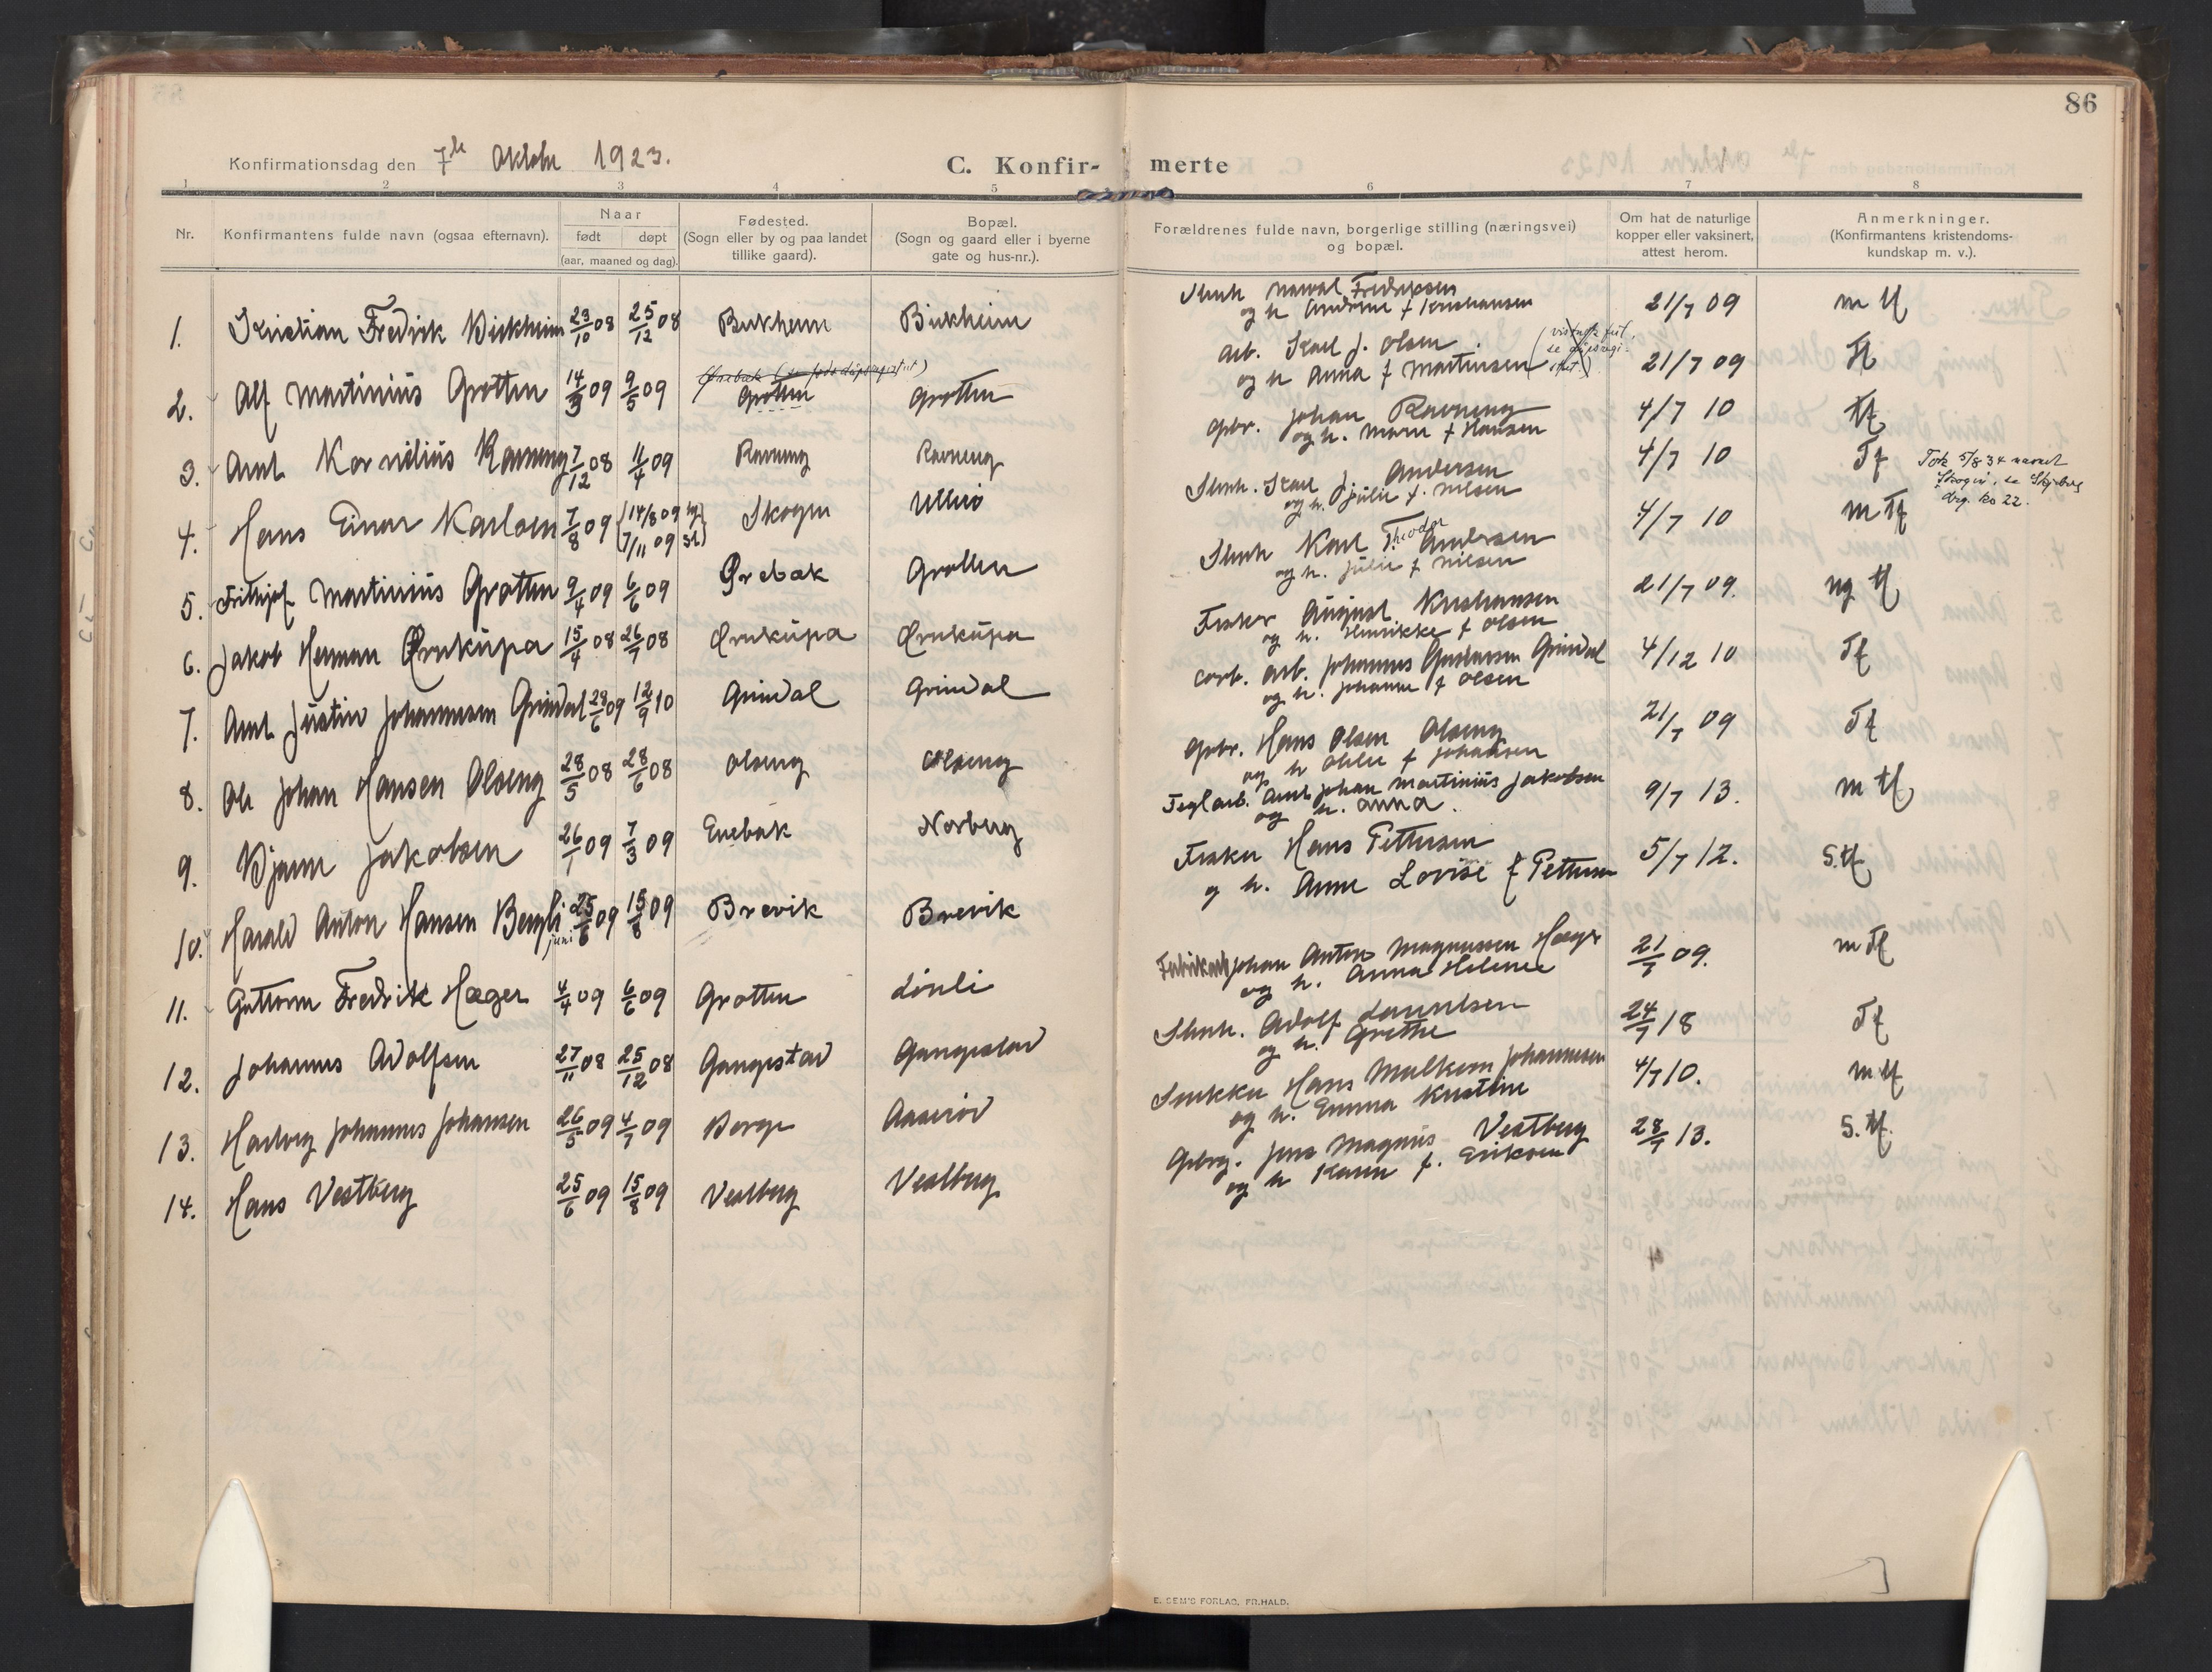 86
Konfirmationsdag den 7de Oktobr 1923.
C. Konfir-merte
1 2 3 4 5 6 7 8
Nr.
Konfirmantens fulde navn (ogsaa efternavn).
Naar
født døpt
(aar, maaned og dag).
Fødested.
(Sogn eller by og paa landet
tillike gaard).
Bopæl.
(Sogn og gaard eller i byerne
gate og hus-nr.).
Forældrenes fulde navn, borgerlige stilling (næringsvei)
og bopæl.
Om hat de naturlige
kopper eller vaksinert,
attest herom.
Anmerkninger.
(Konfirmantens kristendoms-
kundskap m. v.).
1. Kristian Fredrik Birkheim 23/10 08 25/12 08 Birkheim Birkheim
Fredriksen 21/7 09 m tf
og h Andrine f Kristiansen
2. Alf Martinius Grotten 14/3 09 9/5 09 Grotten Grotten
Arb. Karl J. Olsen 21/7 09 tf
og h Anna f Martinsen
3. Arnt Kornelius Ravneng 7/12 08 11/4 09 Ravneng Ravneng
Gbr. Johan Ravneng 4/7 10 tf
og h. Marie f Hansen
4. Hans Einar Karlsen 7/8 09 14/8 09 hj 7/11 09 st Skogen Ullerø
Stenh. Karl J. Andersen 4/7 10 Tf
og h. Julie f. Nilsen
Tok 5/8 34 navnet
Skogen, se Skjeberg
dag. ko 22.
5. Frithjof Martinius Grotten 9/4 09 6/6 09 Ørebæk Grotten
Stenh Karl Theodor Andersen 4/7 10 m tf
og h. Julie f Nilsen
6. Jakob Herman Ørnkupa 15/4 08 26/7 08 Ørnkupa Ørnkupa
Fisker August Kristiansen 21/7 09. ng tf
og h. Henrikke f Olsen
7. Arnt Justin Johannesen Grindal 23/6 09 12/9 10 Grindal Grindal
arb. Johannes Gustavsen Grindal 4/12 10 Tf
og h. Johanne f Olsen
8. Ole Johan Hansen Olseng 28/5 08 28/6 08 Olseng Olseng
Gbr. Hans Olsen Olseng 21/7 09 Tf
og h Othilie f Johansen
9. Bjarne Jakobsen 26/1 09 7/3 09 Enebak Norberg
Teglarb. Arnt Johan Martinius Jakobsen 9/7 13. m tf
og h. Anna.
10. Harald Anton Hansen Bergli 25/6 09 15/8 09 Brevik Brevik
juni
Fisker Hans Pettersen 5/7 12. S. tf
og h. Anne Lovise f Pettersen
11. Guttorm Fredrik Hæger 4/4 09 6/6 09 Grotten Lönli
Fabrikarb Johan Anton Magnussen Hæger 21/7 09. m Tf
og h. Anna Helene
12. Johannes Adolfsen 27/11 08 25/12 08 Gangestad Gangestad
Stenh. Adolf Lauritsen 24/7 18 Tf
og h. Grethe
13. Hartvig Johannes Johansen 26/5 09 4/7 09 Borge Aaserød
Snekker Hans Malkom Johannesen 4/7 10. m tf
og h. Emma Kristine
14. Hans Vestberg 25/6 09 15/8 09 Vestberg Vestberg
Jens Magnus Vestberg 28/7 13. S. tf.
og h Karen f. Eriksen
E. SEM'S FORLAG, FR.HALD.